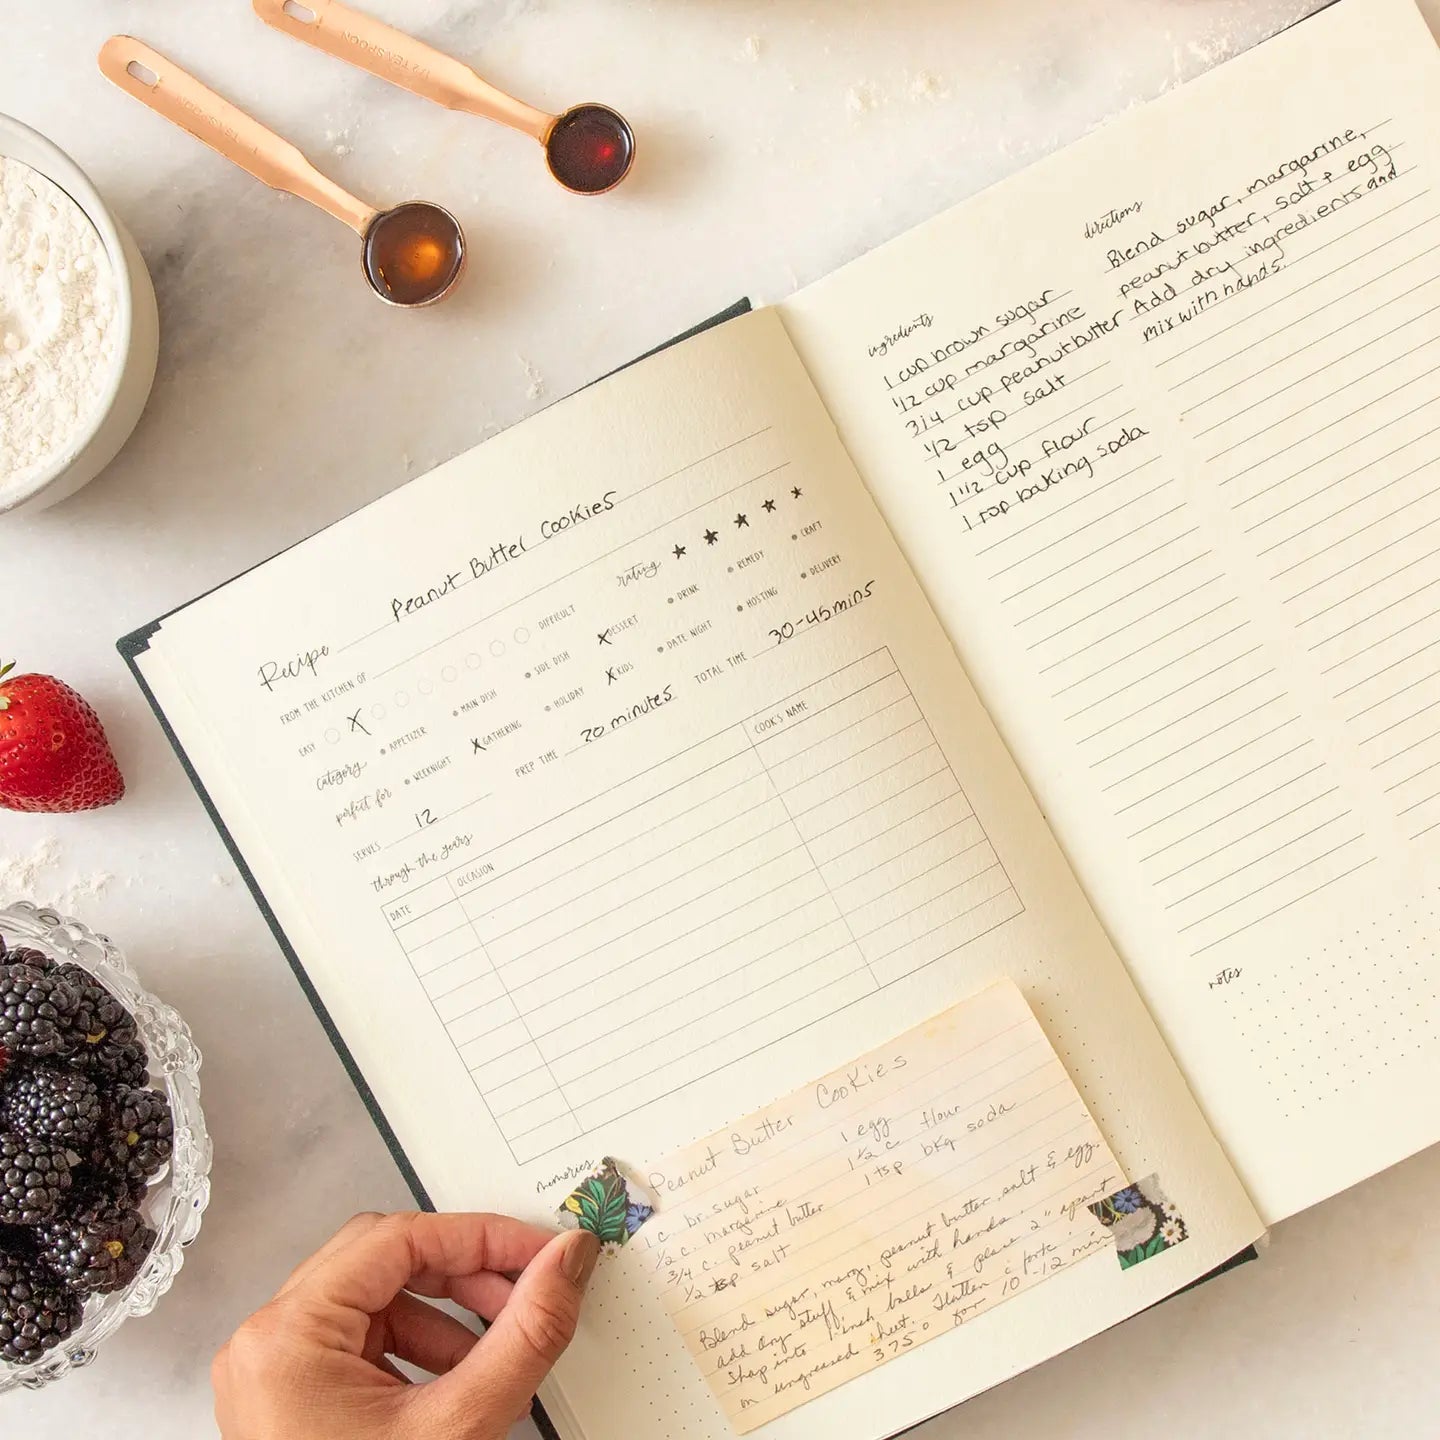 1/2 TEASPOON
1 TEASPOON
Recipe Peanut Butter Cookies
FROM THE KITCHEN OF
EASY X DIFFICULT rating ★ ★ ★ ★ ★
category APPETIZER MAIN DISH SIDE DISH X DESSERT DRINK REMEDY CRAFT
perfect for WEEKNIGHT X GATHERING HOLIDAY X KIDS DATE NIGHT HOSTING DELIVERY
SERVES 12 PREP TIME 20 minutes TOTAL TIME 30-45mins
through the years
DATE OCCASION COOK'S NAME
memories
Peanut Butter Cookies
1 c. br. sugar 1 egg
1/2 c. margerine 1 1/2 c flour
3/4 c. peanut butter 1 tsp bkg soda
1/2 tsp salt
Blend sugar, marg, peanut butter, salt & egg.
add dry stuff & mix with hands.
Shap into 1 inch balls & place 2" apart
on ungreased sheet. Flatten c fork.
375° for 10-12 min
ingredients
1 cup brown sugar
1/2 cup margarine
3/4 cup peanut butter
1/2 tsp salt
1 egg
1 1/2 cup flour
1 tsp baking soda
directions
Blend sugar, margarine,
peanut butter, salt + egg.
Add dry ingredients and
mix with hands.
notes